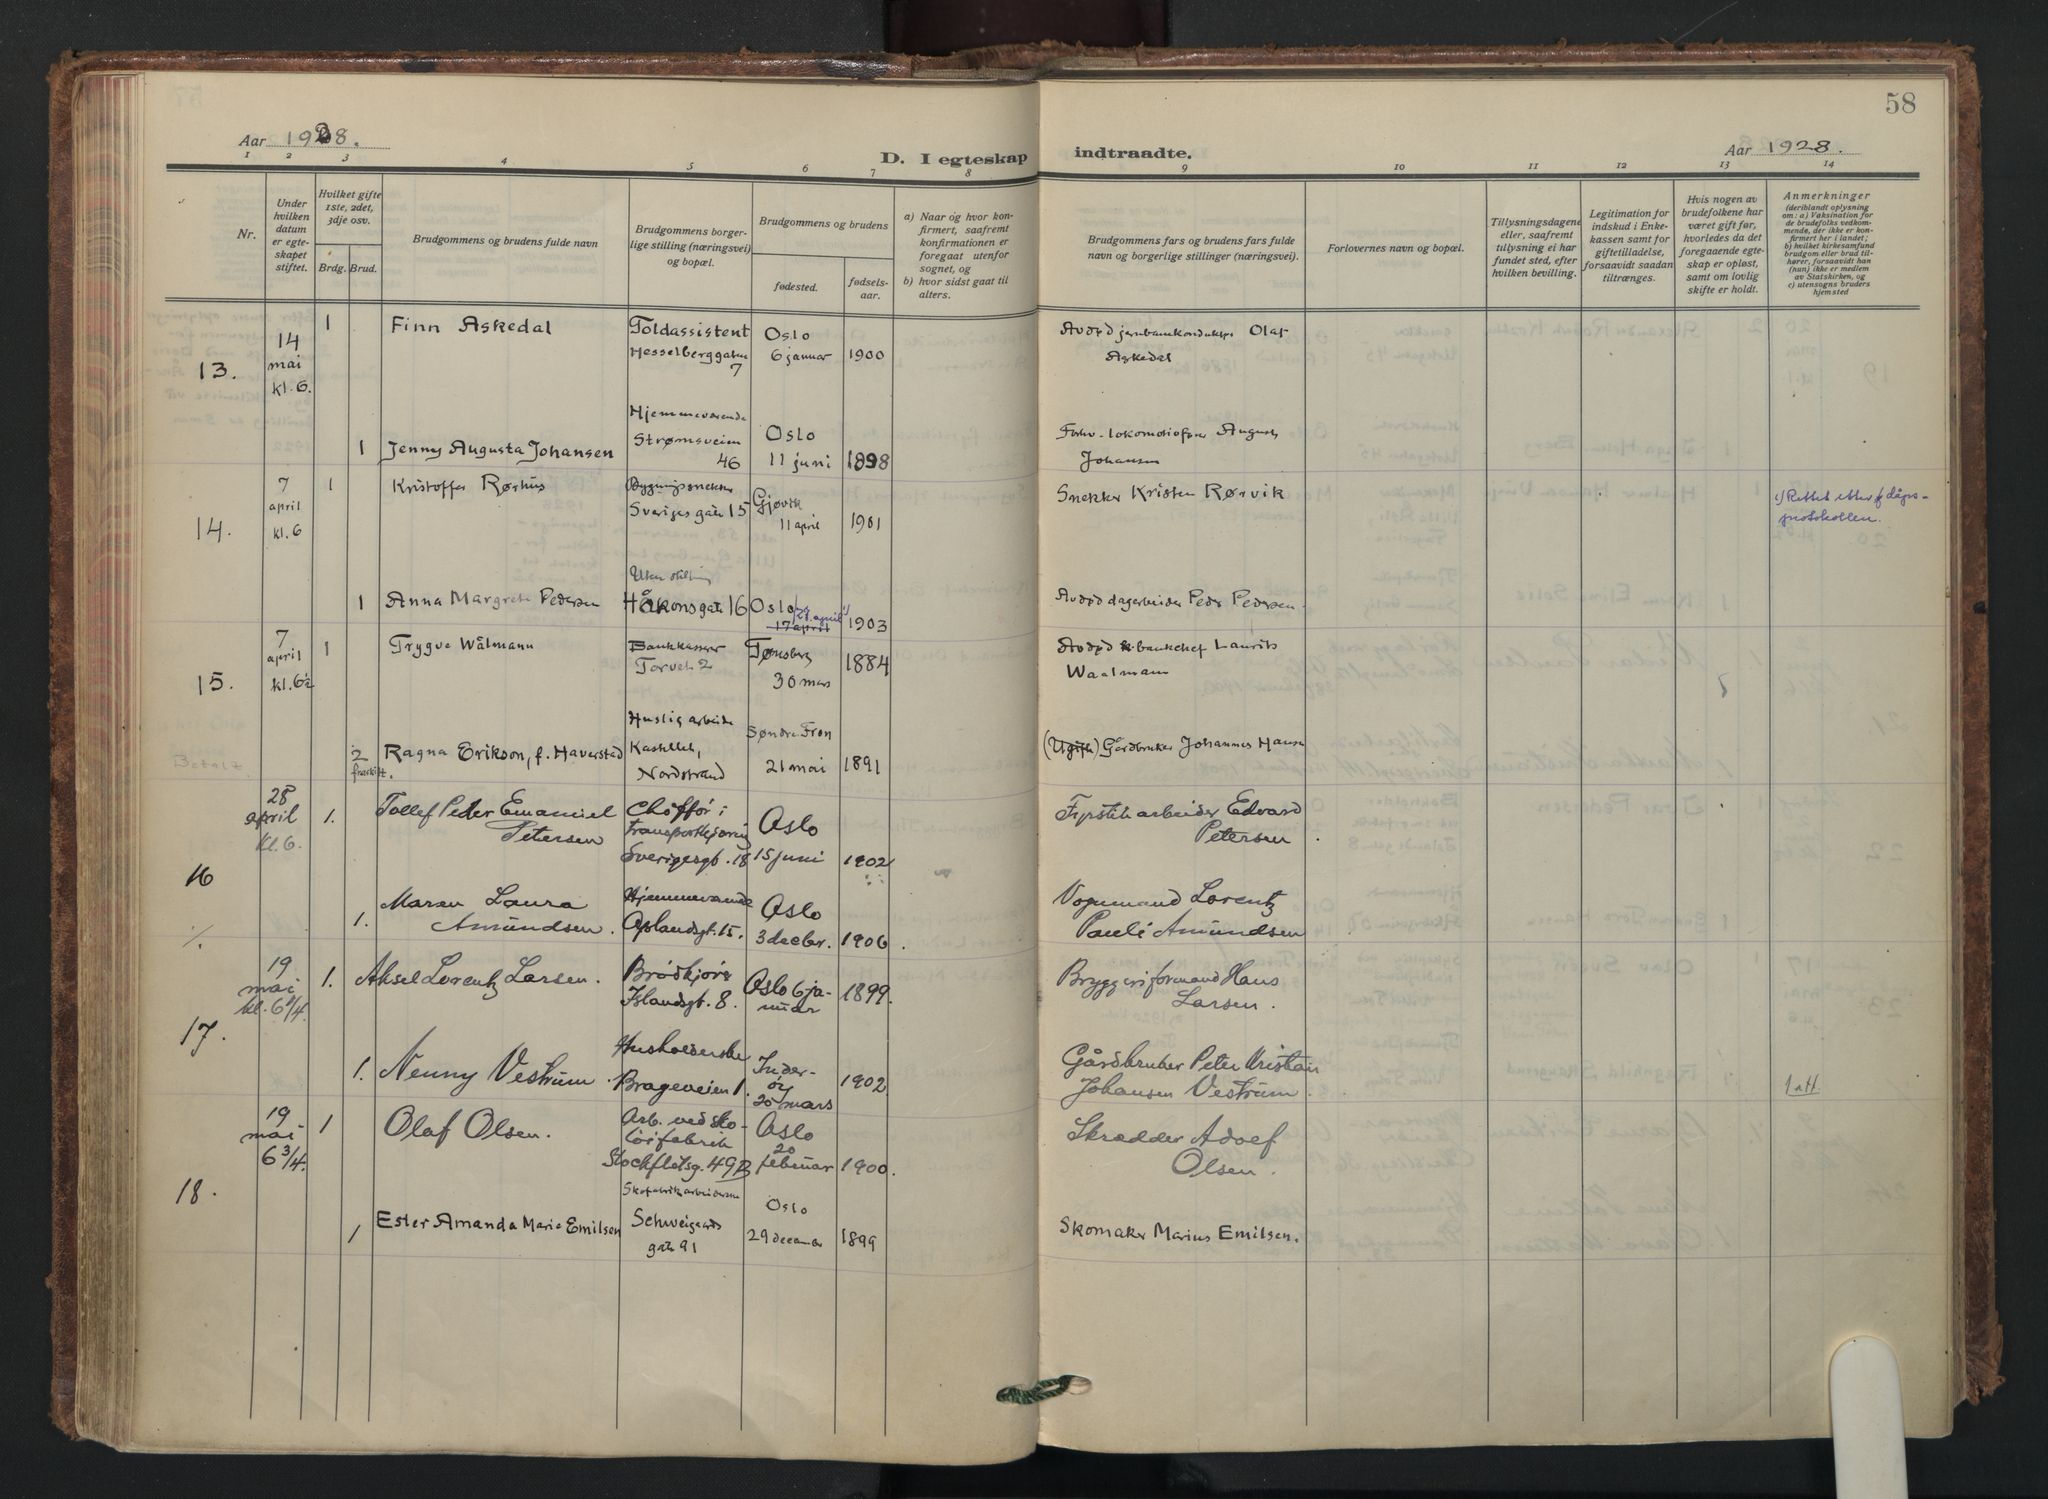 58
Aar 1928.
D. I egteskap indtraadte.
Aar 1928.
1 2 3 4 5 6 7 8 9 10 11 12 13 14
Nr.
Under hvilken datum er egteskapet stiftet.
Hvilket gifte 1ste, 2det, 3dje osv.
Brdg. Brud.
Brudgommens og brudens fulde navn
Brudgommens borgerlige stilling (næringsvei) og bopæl.
Brudgommens og brudens
fødested.
fødselsaar.
a) Naar og hvor konfirmert, saafremt konfirmationen er foregaat utenfor sognet, og
b) hvor sidst gaat til alters.
Brudgommens fars og brudens fars fulde navn og borgerlige stillinger (næringsvei).
Forlovernes navn og bopæl.
Tillysningsdagene eller, saafremt tillysning ei har fundet sted, efter hvilken bevilling.
Legitimation for indskud i Enkekassen samt for giftetilladelse, forsaavidt saadan tiltrænges.
Hvis nogen av brudefolkene har været gift før, hvorledes da det foregaaende egteskap er opløst, samt om lovlig skifte er holdt.
Anmerkninger
(deriblandt oplysning om: a) Vaksination for de brudefolks vedkommende, der ikke er konfirmert her i landet; b) hvilket kirkesamfund brudgom eller brud tilhører, forsaavidt han (hun) ikke er medlem av Statskirken, og c) utensogns bruders hjemsted
13.
14 mai kl. 6.
1
Finn Askedal
Toldassistent
Hesselberggaten 7
Oslo
6 januar
1900
Avdød jernbanekonduktør Olaf
Askedal
1
Jenny Augusta Johansen
Hjemmeværende
Strømsveien 46
Oslo
11 juni
1898
Forhv. lokomotivfører August
Johansen
14.
7 april kl. 6
1
Kristoffer Rørhus
Bygningssnekker
Sveriges gate 15
Gjøvik
11 april
1901
Snekker Kristen Rørvik
1) Rettet etter dåpsprotokollen.
1
Anna Margrete Pedersen
Uten stilling
Håkonsgate 16
Oslo
17 april
27. april 1)
1903
Avdød dagarbeider Peder Pedersen
15.
7 april kl. 6½
1
Trygve Wålmann
Bankkasserer
Torvet 2
Tønsberg
30 mars
1884
Avdød bankchef Laurits
Waalmann
Betalt
2 fraskilt.
Ragna Erikson, f. Haverstad
Huslig arbeide
Kastellet,
Nordstrand
Søndre Fron
21 mai
1891
(Ugift) Gårdbruker Johannes Hansen
16
28 april kl. 6.
1.
Tollef Peder Emanuel
Petersen
Chófför i
transportkjöring
Sverigesgt. 18
Oslo
15 juni
1902
Fyrstikarbeider Edvard
Petersen.
1.
Maren Laura
Amundsen.
Hjemmeværende
Oslo
3 decbr.
1906.
Vognmand Lorentz
Pauli Amundsen
17.
19 mai kl. 6¼.
1.
Aksel Lorentz Larsen.
Brödkjörer
Islandsgt. 8.
Oslo 6 januar
1899.
Bryggeriformand Hans
Larsen.
1.
Nenny Vestrum.
Husholderske
Brageveien 1.
Inderöy
20 mars
1902
Gårdbruker Peter Kristian
Johansen Vestrum.
1 att
18.
19 mai 6¾.
1
Olaf Olsen.
Arb. ved skotöifabrik
Stockfletsg. 49B
Oslo
20 februar
1900.
Skrædder Adolf
Olsen.
1
Ester Amanda Marie Emilsen
Skofabrikarbeiderske
Schweigaards
gate 91
Oslo
29 december
1899
Skomaker Marius Emilsen.